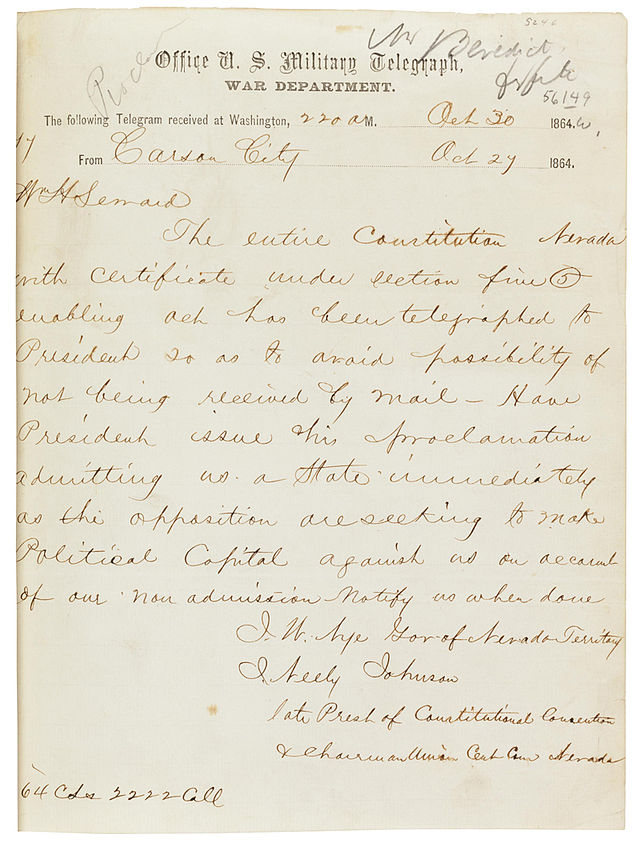 5246
Mr Benedict,
Office U. S. Military Telegraph,
WAR DEPARTMENT.
56149
The following Telegram received at Washington, 220 a M. Oct 30 1864.
17
From Carson City Oct 29 1864.
Wm H Seward
The entire Constitution Nevada
with certificate under section five (5)
enabling act has been telegraphed to
President so as to avoid possibility of
not being received by mail – Have
President issue his proclamation
admitting us a State immediately
as the opposition are seeking to make
Political Capital against us on account
of our non admission Notify us when done
J. W. Nye Gov of Nevada Territory
J. Neely Johnson
late Prest of Constitutional Convention
& Chairman Union Cent Com Nevada
64 Cols 2222 Call